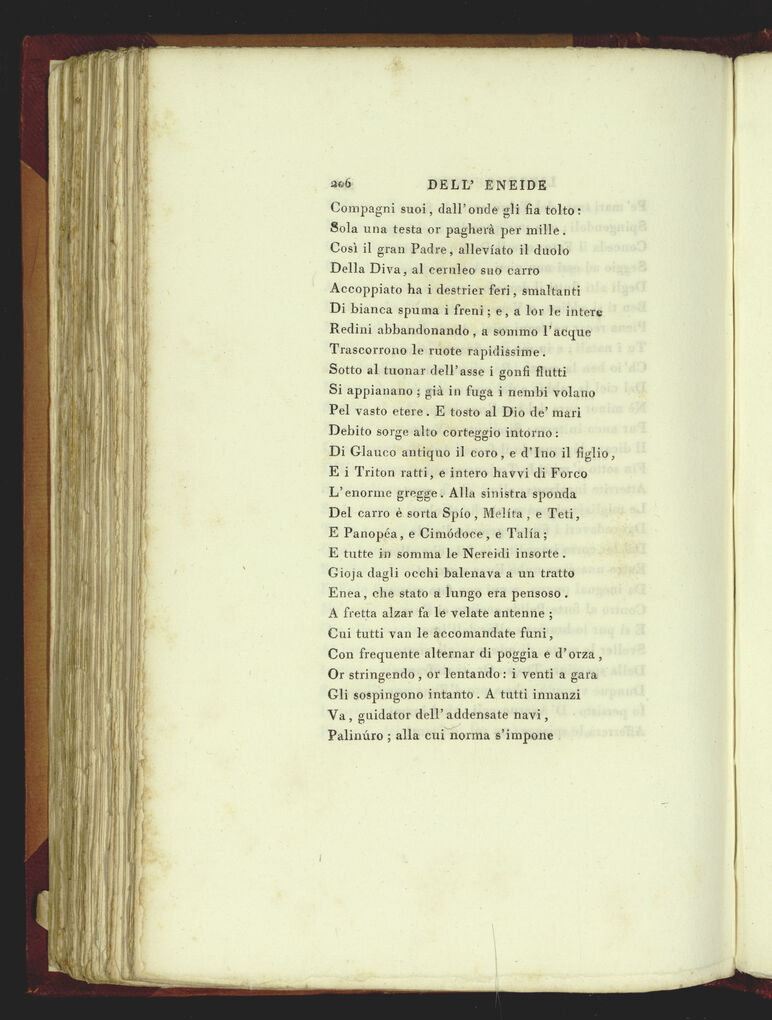 206 DELL' ENEIDE
Compagni suoi, dall'onde gli fia tolto:
Sola una testa or pagherà per mille.
Così il gran Padre, allevíato il duolo
Della Diva, al ceruleo suo carro
Accoppiato ha i destrier feri, smaltanti
Di bianca spuma i freni; e, a lor le intere
Redini abbandonando, a sommo l'acque
Trascorrono le ruote rapidissime.
Sotto al tuonar dell'asse i gonfi flutti
Si appianano; già in fuga i nembi volano
Pel vasto etere. E tosto al Dio de' mari
Debito sorge alto corteggio intorno:
Di Glauco antiquo il coro, e d'Ino il figlio,
E i Triton ratti, e intero havvi di Forco
L'enorme gregge. Alla sinistra sponda
Del carro è sorta Spío, Melíta, e Teti,
E Panopéa, e Cimódoce, e Talía;
E tutte in somma le Nereidi insorte.
Gioja dagli occhi balenava a un tratto
Enea, che stato a lungo era pensoso.
A fretta alzar fa le velate antenne;
Cui tutti van le accomandate funi,
Con frequente alternar di poggia e d'orza,
Or stringendo, or lentando: i venti a gara
Gli sospingono intanto. A tutti innanzi
Va, guidator dell'addensate navi,
Palinúro; alla cui norma s'impone